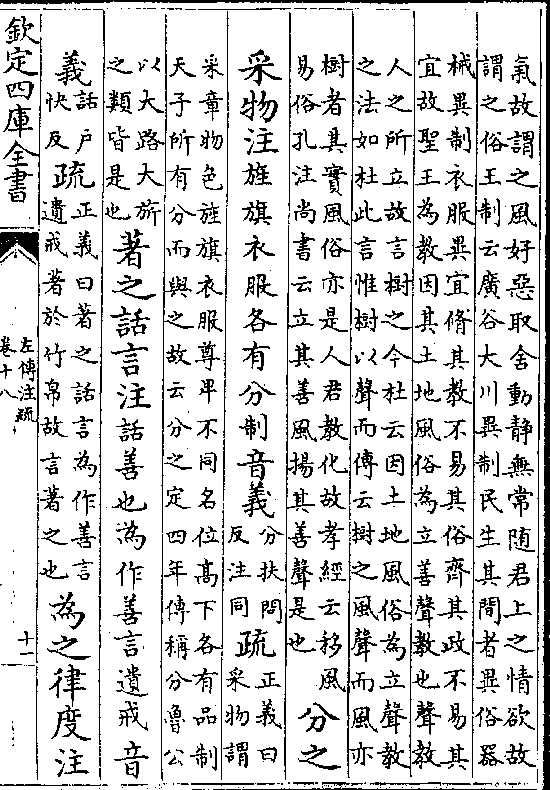 氣故謂之風好惡取舍動靜無常隨君上之情欲故
謂之俗王制云廣谷大川異制民生其間者異俗器
械異制衣服異宜脩其教不易其俗齊其政不易其
宜故聖王為教因其土地風俗為立善聲教也聲教
人之所立故言樹之今杜云因土地風俗為立聲教
之法如杜此言惟樹以聲而傳云樹之風聲而風亦
樹者其實風俗亦是人君教化故孝經云移風
易俗孔注尚書云立其善風揚其善聲是也
分之
采物注旌旗衣服各有分制音義
分扶問
反注同
疏
正義曰
采物謂
采章物色旌旗衣服尊卑不同名位高下各有品制
天子所有分而與之故云分之定四年傳稱分魯公
以大路大旂
之類皆是也
著之話言注話善也為作善言遺戒音
義
話戶
快反
疏
正義曰著之話言為作善言
遺戒著於竹帛故言著之也
為之律度注
欽定四庫全書
左傳注疏
卷十八
十一